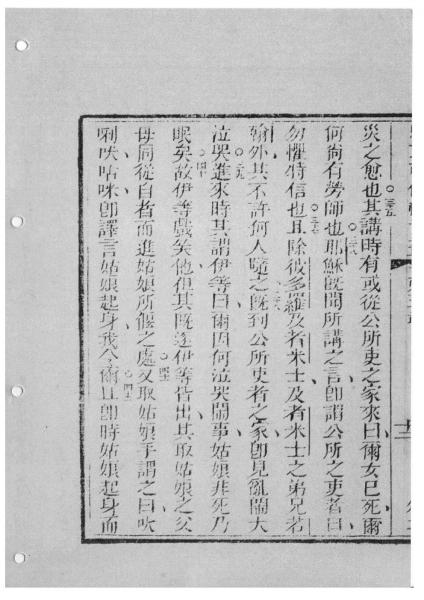 炎之愈也三五其講時有或從公所吏之家來曰爾女已死爾
何尚有勞師也三六耶穌既聞所講之言卽謂公所之吏者曰
勿懼特信也三七且除彼多羅及者米士及者米士之弟兄若
翰外其不許何人隨之三八既到公所吏者之家卽見亂鬧大
泣哭三九進來時其謂伊等曰爾因何泣哭鬧事姑娘非死乃
眠矣四十故伊等戲笑他但其既逐伊等皆出其取姑娘之父
母同從自者而進姑娘所偃之處四一又取姑娘手謂之曰吠
唎呋咕咪卽譯言姑娘起身我令爾四二且卽時姑娘起身而